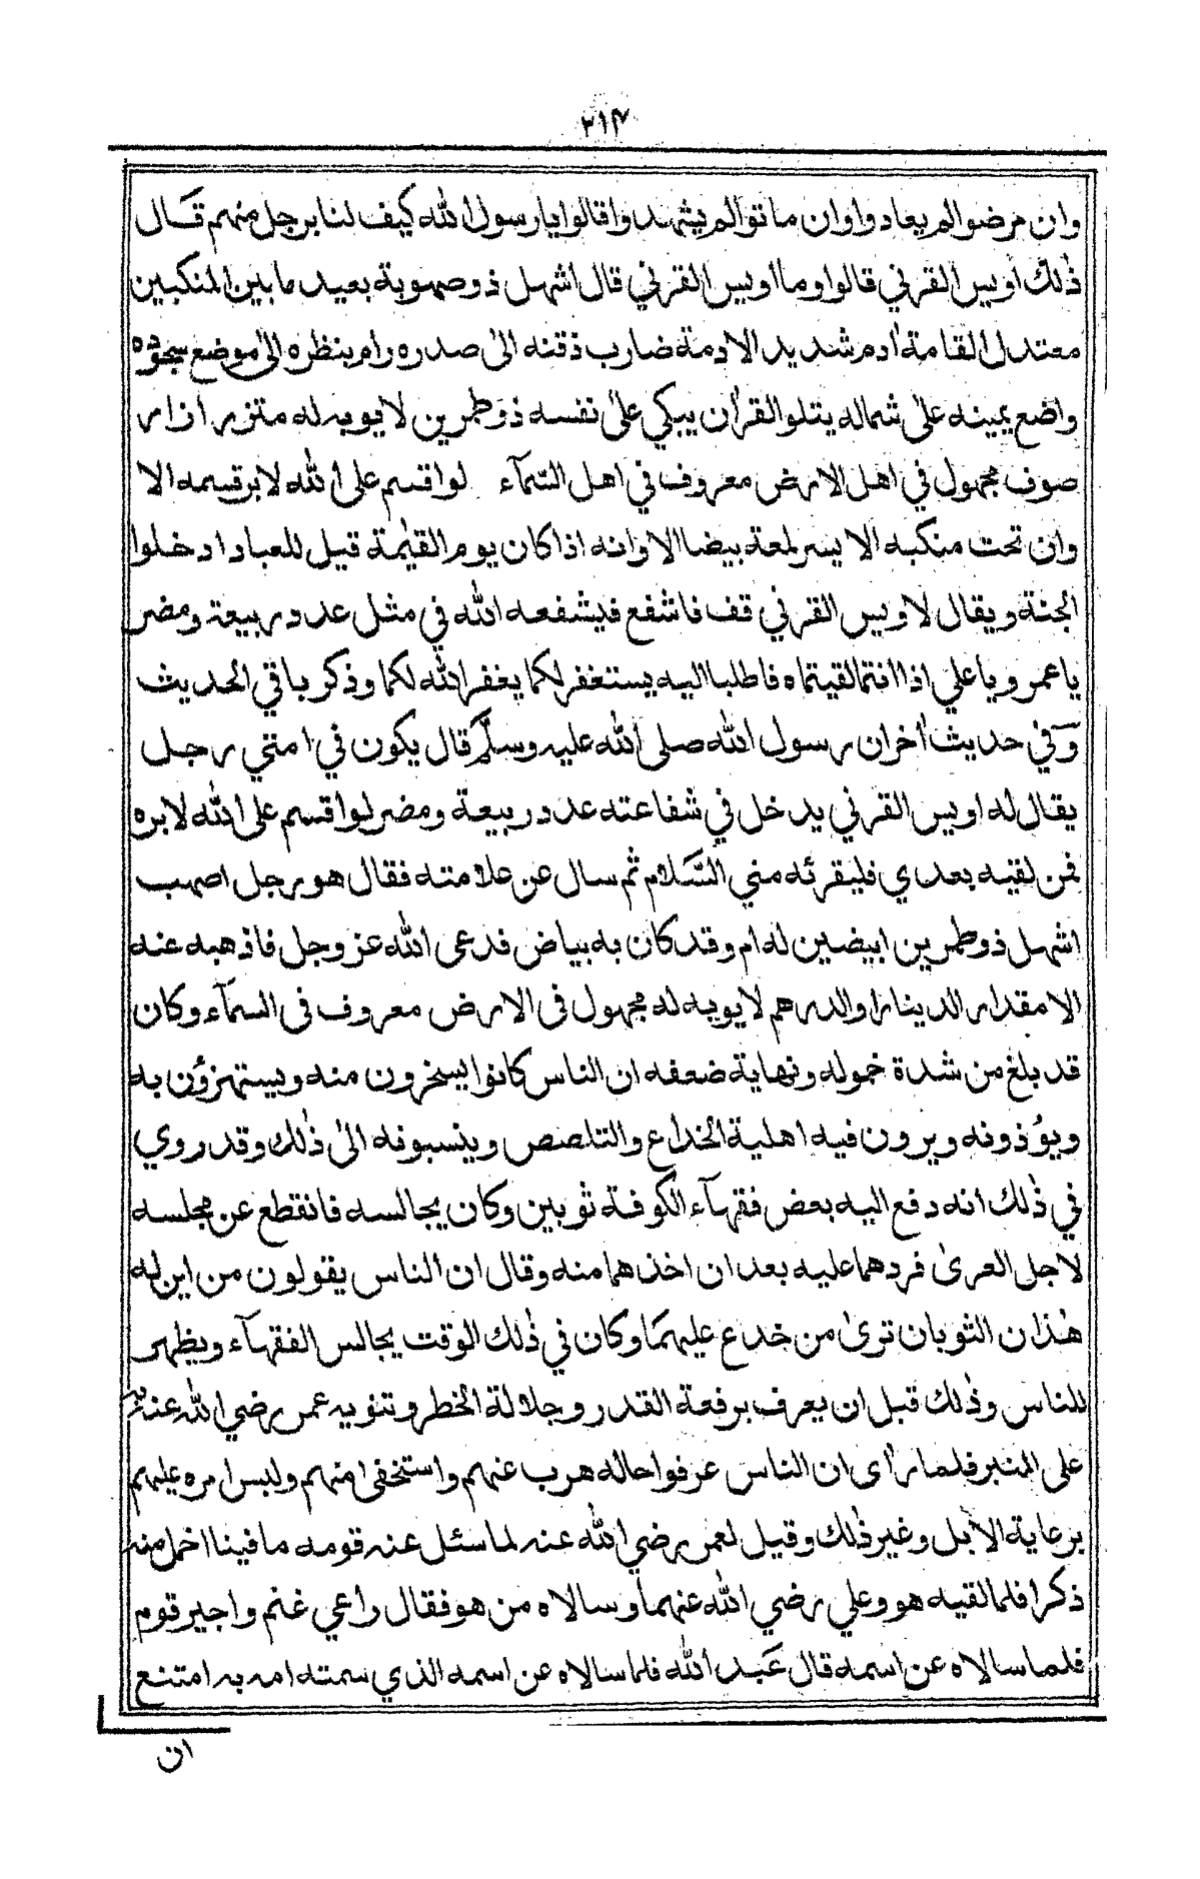 ٣١٤
وان مرضوا لم يعادوا وان ماتوا لم يشهدوا قالوا يا رسول الله كيف لنا برجل منهم قال
ذٰلك اويس القرني قالوا وما اويس القرني قال اشهل ذو صهوبة بعيد ما بين المنكبين
معتدل القامة اٰدم شديد الادمة ضارب ذقنه الىٰ صدره رام بنظره الىٰ موضع سجوده
واضع يمينه علىٰ شماله يتلو القراٰن يبكي علىٰ نفسه ذو طمرين لا يوبه له متزر ازار
صوف مجهول في اهل الارض معروف في اهل السّمآء لو اقسم على الله لابر قسمه الا
وان تحت منكبه الايسر لمعة بيضا الا وانه اذا كان يوم القيٰمة قيل للعباد ادخلوا
الجنة ويقال لاويس القرني قف فاشفع فيشفعه الله في مثل عدد ربيعة ومضر
يا عمر ويا علي اذا انتما لقيتماه فاطلبا اليه يستغفر لكما يغفر الله لكما وذكر باقي الحديث
وَفي حديث اٰخر ان رسول الله صلى الله عليه وسلّم قال يكون في امتي رجل
يقال له اويس القرني يدخل في شفاعته عدد ربيعة ومضر لو اقسم على الله لابره
فمن لقيه بعدي فليقرئه مني السّلام ثم سال عن علامته فقال هو رجل اصهب
اشهل ذو طمرين ابيضين له ام وقد كان به بياض فدعى الله عز وجل فاذهبه عنه
الا مقدار الدينار او الدرهم لا يوبه له مجهول فى الارض معروف فى السمآء وكان
قد بلغ من شدة خموله ونهاية ضعفه ان الناس كانوا يسخرون منه ويستهزؤن به
ويؤذونه ويرون فيه اهلية الخداع والتلصص وينسبونه الىٰ ذٰلك وقد روي
في ذٰلك انه دفع اليه بعض فقهآء الكوفة ثوبين وكان يجالسه فانقطع عن مجلسه
لاجل العرىٰ فردهما عليه بعد ان اخذهما منه وقال ان الناس يقولون من اين له
هٰذان الثوبان ترىٰ من خدع عليهما وكان في ذٰلك الوقت يجالس الفقهآء ويظهر
للناس وذٰلك قبل ان يعرف برفعة القدر وجلالة الخطر وتنويه عمر رضي الله عنه به
على المنبر فلما راٰى ان الناس عرفوا حاله هرب عنهم واستخفى منهم ولبس امره عليهم
برعاية الابل وغير ذٰلك وقيل لعمر رضي الله عنه لما سئل عنه قومه ما فينا اخمل منه
ذكرا فلما لقيه هو وعلي رضي الله عنهما وسالاه من هو فقال راعي غنم واجير قوم
فلما سالاه عن اسمه قال عَبد الله فلما سالاه عن اسمه الذي سمته امه به امتنع
ان